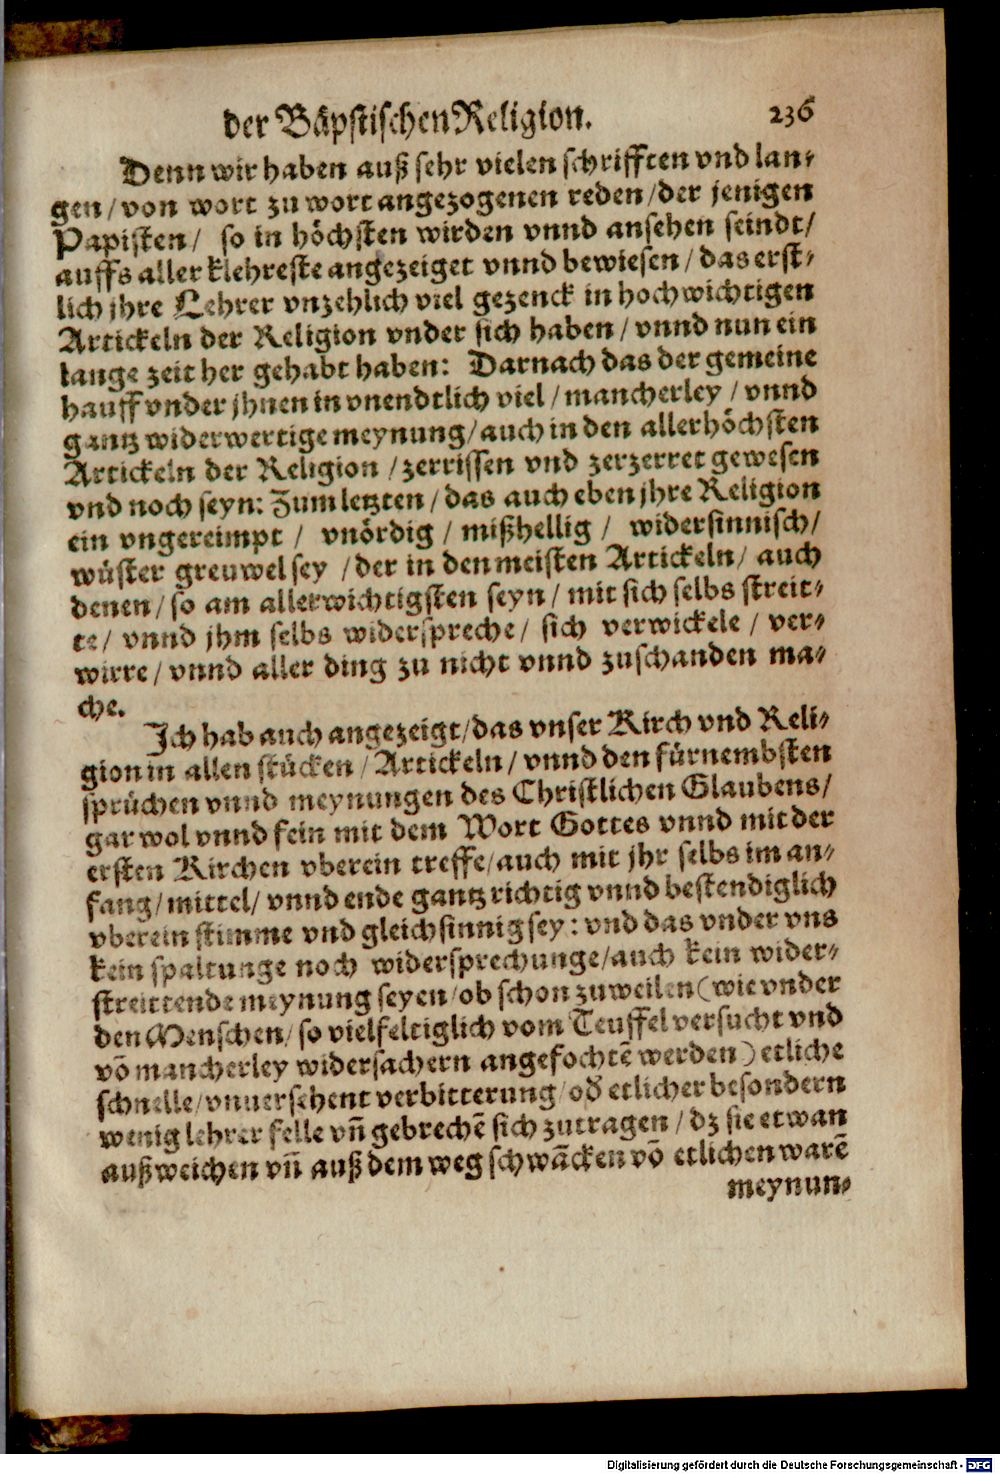 der Bäpstischen Religion. 236
Denn wir haben auß sehr vielen schrifften vnd lan-
gen/ von wort zu wort angezogenen reden/ der jenigen
Papisten/ so in höchsten wirden vnnd ansehen seindt/
auffs aller klehreste angezeiget vnnd bewiesen/ das erst-
lich jhre Lehrer vnzehlich viel gezenck in hochwichtigen
Artickeln der Religion vnder sich haben/ vnnd nun ein
lange zeit her gehabt haben: Darnach das der gemeine
hauff vnder jhnen in vnendtlich viel/ mancherley/ vnnd
gantz widerwertige meynung/ auch in den allerhöchsten
Artickeln der Religion/ zerrissen vnd zerzerret gewesen
vnd noch seyn: Zum letzten/ das auch eben jhre Religion
ein vngereimpt/ vnördig/ mißhellig/ widersinnisch/
wüster greuwel sey/ der in den meisten Artickeln/ auch
denen/ so am allerwichtigsten seyn/ mit sich selbs streit-
te/ vnnd jhm selbs widerspreche/ sich verwickele/ ver-
wirre/ vnnd aller ding zu nicht vnnd zuschanden ma-
che.
Ich hab auch angezeigt/ das vnser Kirch vnd Reli-
gion in allen stücken/ Artickeln/ vnnd den fürnembsten
sprüchen vnnd meynungen des Christlichen Glaubens/
gar wol vnnd fein mit dem Wort Gottes vnnd mit der
ersten Kirchen vberein treffe/ auch mit jhr selbs im an-
fang/ mittel/ vnnd ende gantz richtig vnnd bestendiglich
vberein stimme vnd gleichsinnig sey: vnd das vnder vns
kein spaltunge noch widersprechunge/ auch kein wider-
streittende meynung seyen/ ob schon zuweilen (wie vnder
den Menschen/ so vielfeltiglich vom Teuffel versucht vnd
võ mancherley widersachern angefochtẽ werden) etliche
schnelle/ vnuersehent verbitterung/ od̕ etlicher besondern
wenig lehrer felle vñ gebrechẽ sich zutragen/ dz sie etwan
außweichen vñ auß dem weg schwãcken võ etlichen warẽ
meynun-
Digitalisierung gefördert durch die Deutsche Forschungsgemeinschaft - DFG